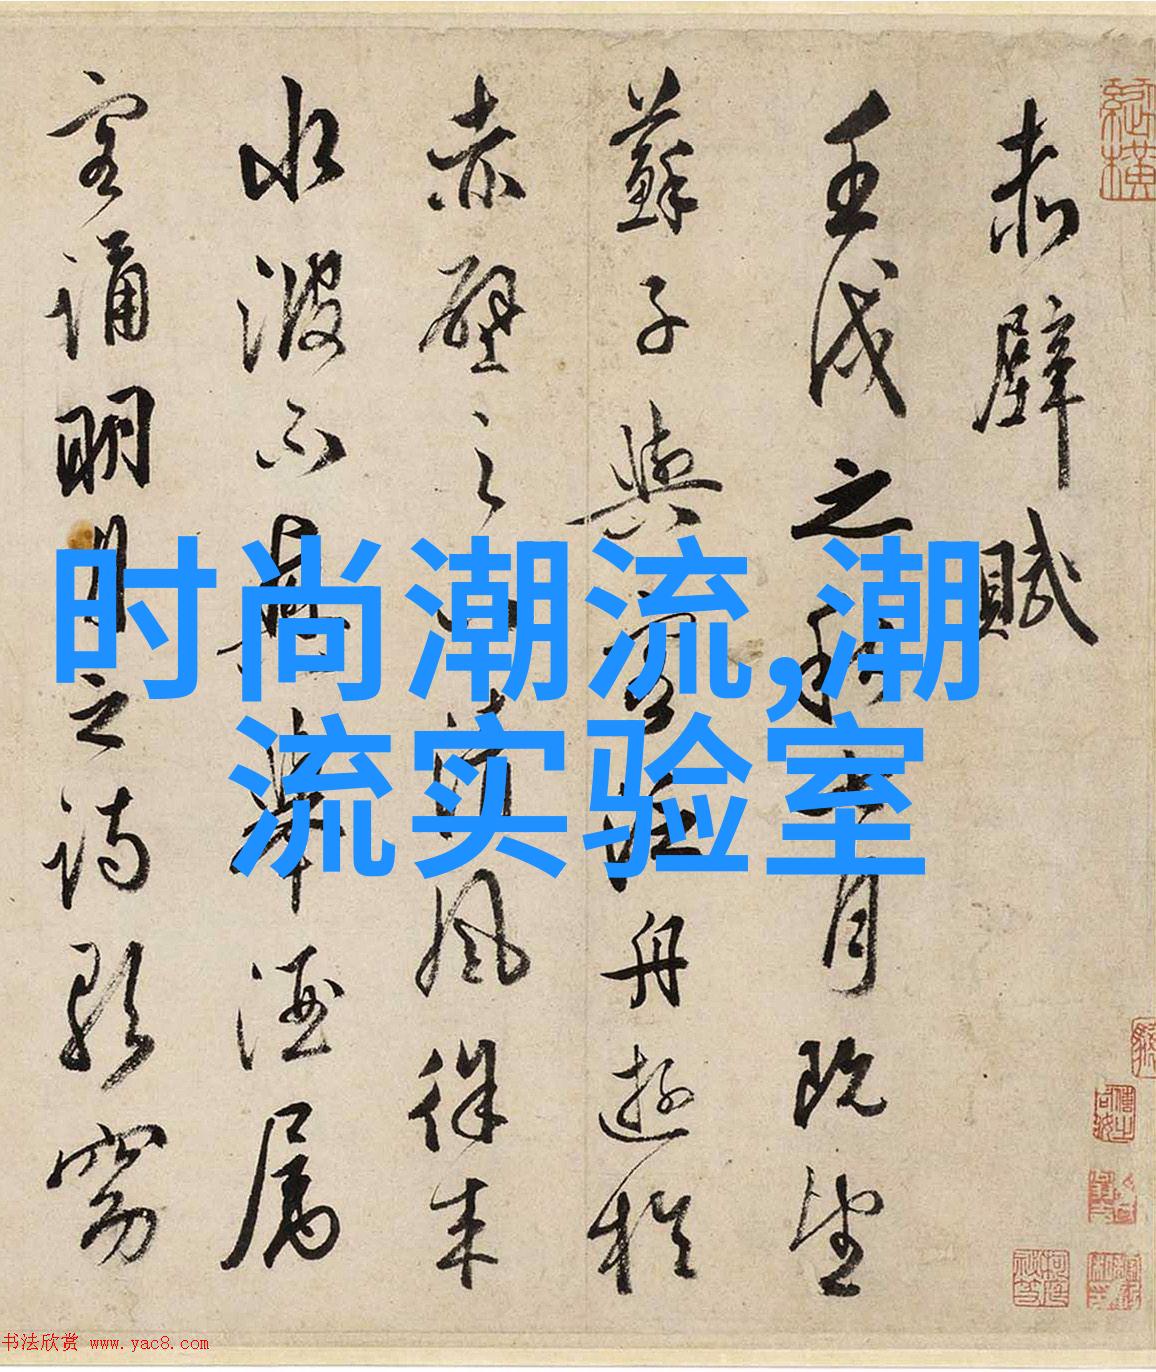 赤壁賦
壬戌之秋七月既望
蘇子與客泛舟遊於
赤壁之下清風徐來
水波不興舉酒屬
客誦明月之詩歌窈
时尚潮流,潮
流实验室
书法欣赏 www.yac8.com